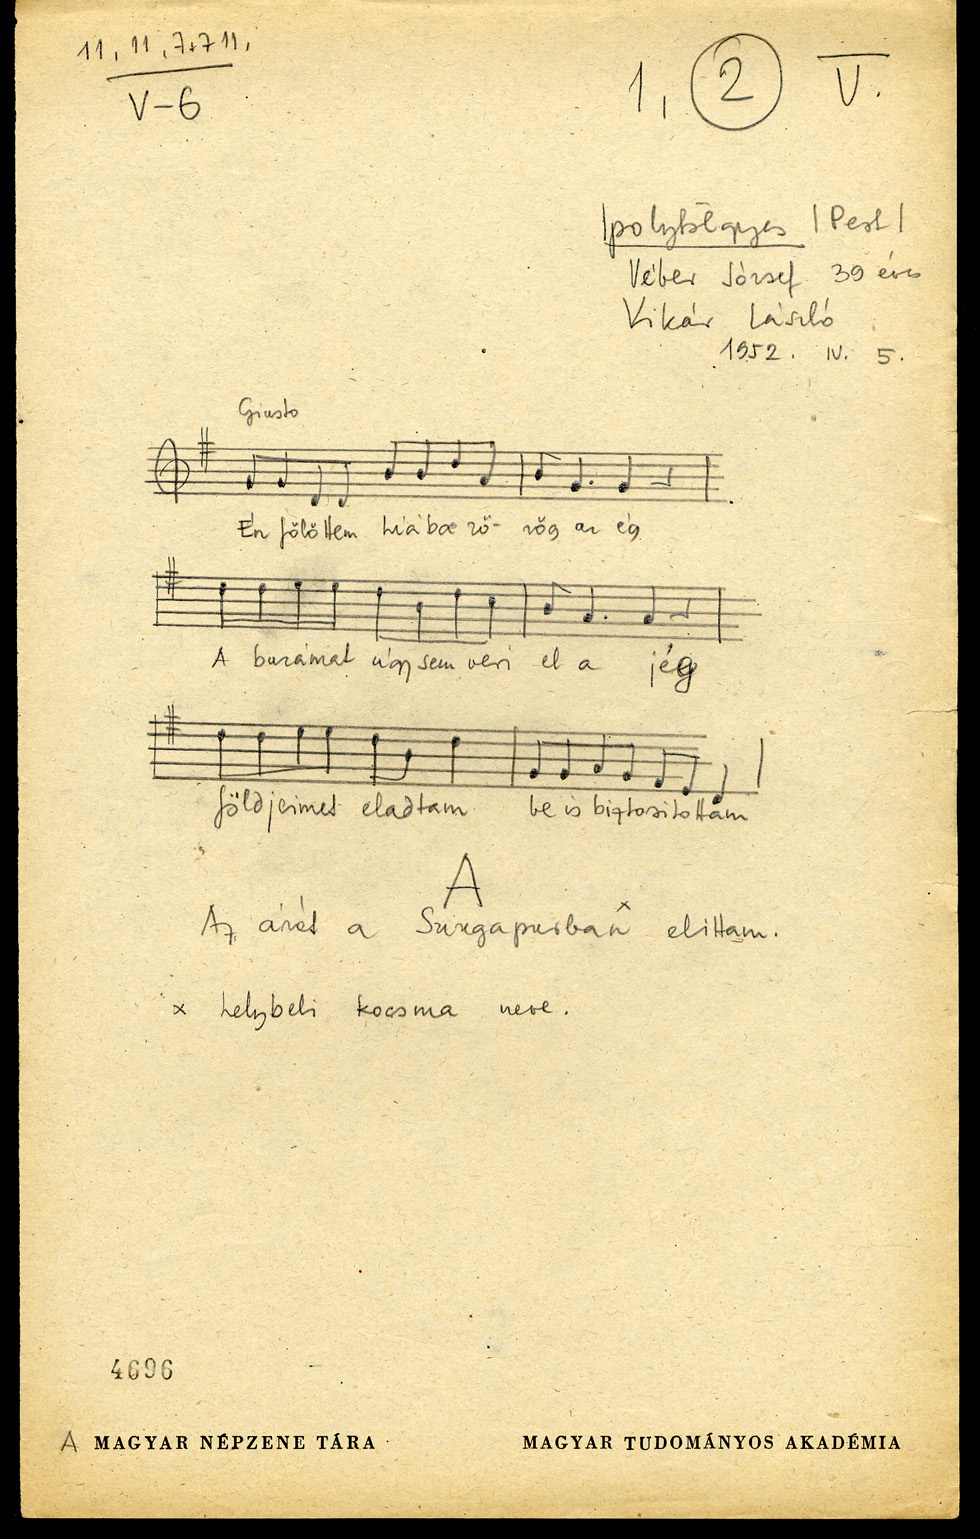 11, 11, 7+7 11,
V-6
1, 2 V.
Ipolytölgyes /Pest/
Véber József 39 éves
Vikár László
1952. IV. 5.
Giusto
Én fölöttem hiába zö- rög az ég
A buzámat úgy sem veri el a jég
földjeimet eladtam be is biztosítottam
A
Az árát a Szingapurban x elittam.
x helybeli kocsma neve.
4696
A MAGYAR NÉPZENE TÁRA MAGYAR TUDOMÁNYOS AKADÉMIA